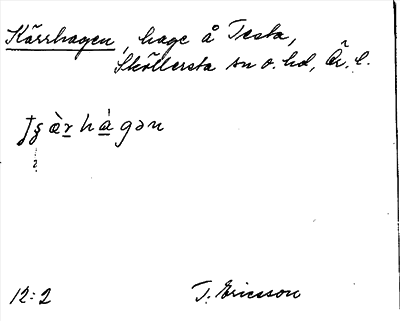 Kärrhagen, hage å Testa,
Sköllersta sn o. hd, Ör. l.
hagən
12:2 T. Ericsson